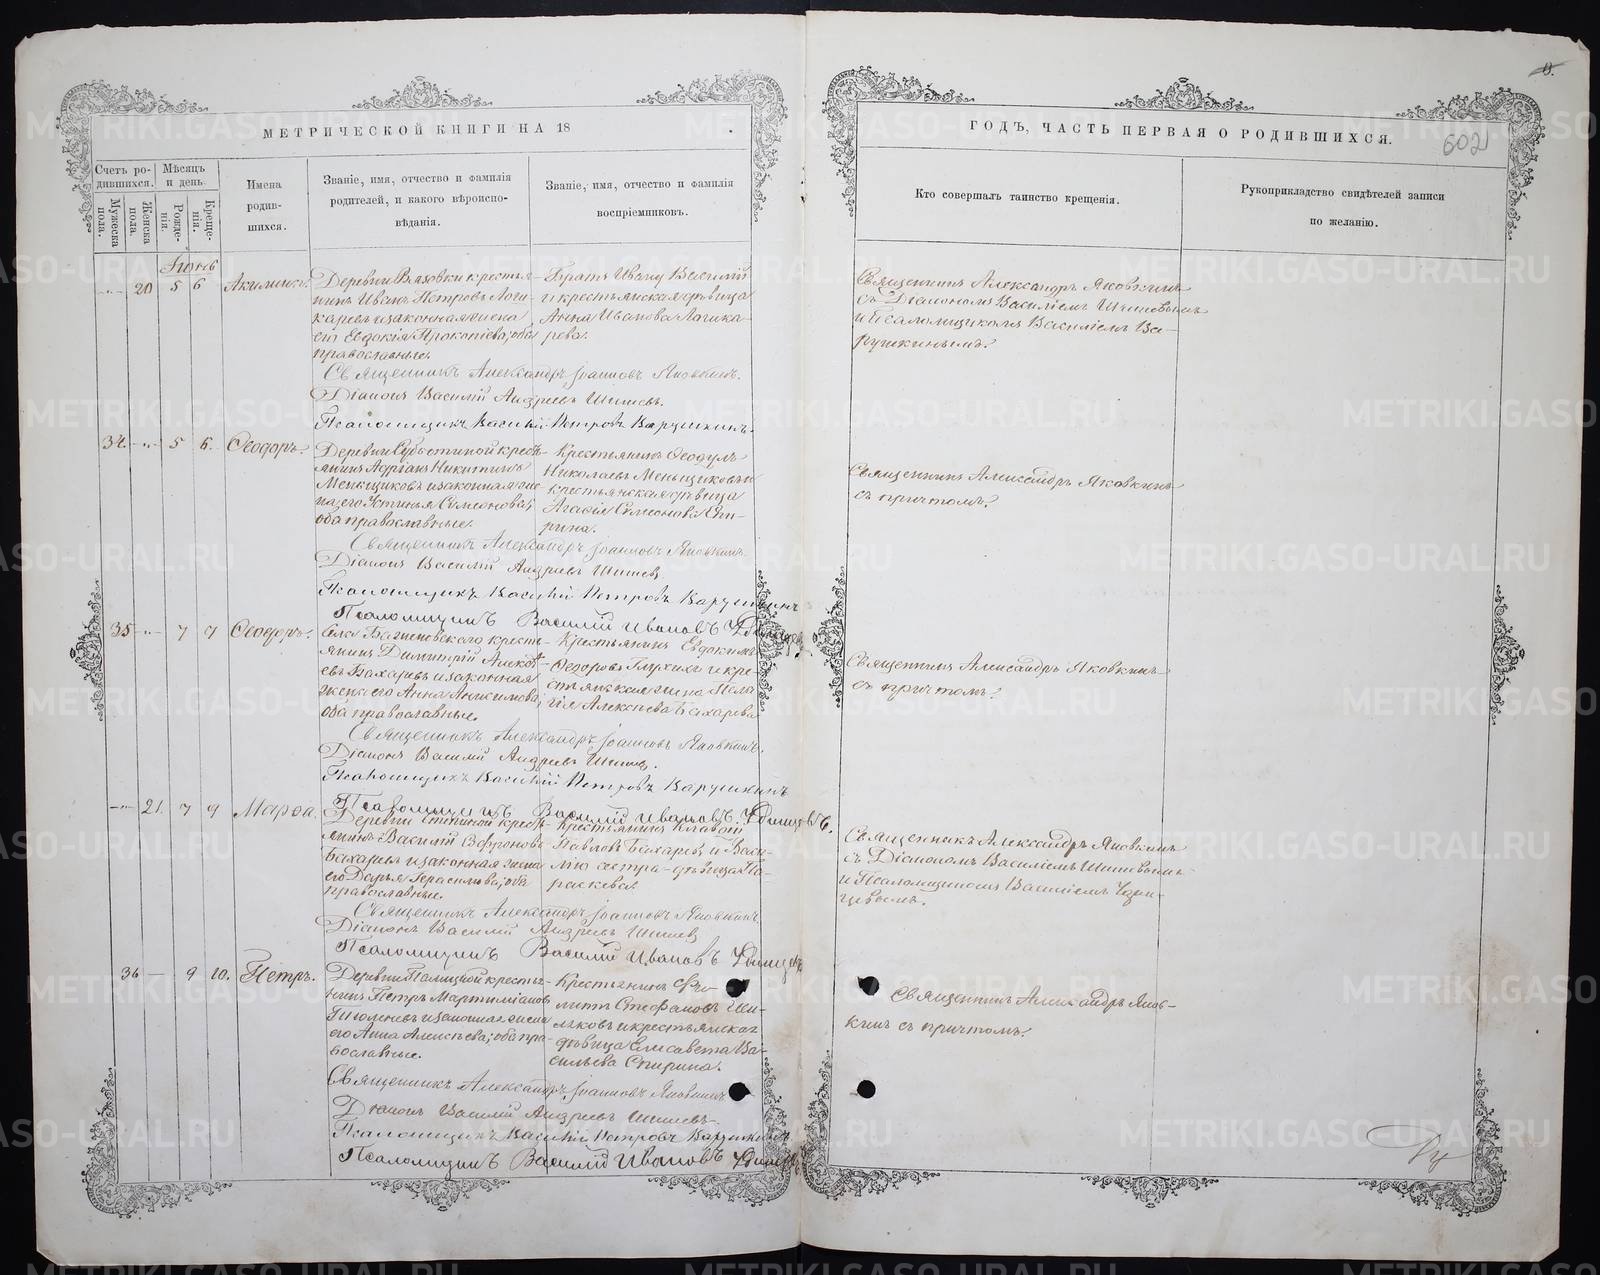 МЕТРИЧЕСКОЙ КНИГИ НА 18
Счетъ ро-
дившихся.
Мѣсяцъ
и день.
Мужеска
пола.
Женска
пола.
Рожде-
нія.
Креще-
нія.
Имена
родив-
шихся.
Званіе, имя, отчество и фамилія
родителей, и какого вѣроиспо-
вѣданія.
Званіе, имя, отчество и фамилія
воспріемниковъ.
20 5 6
Деревни Вязовки крестья-
нинъ Иванъ Петровъ
законная жена
его Евдокія Прокопіева, оба
православные.
Братъ Ивану Василій
и крестьянская дѣвица
Анна Иванова
Священникъ Александръ Іоанновъ Яковкинъ.
Діаконъ Василій Андреевъ Шишевъ.
Псаломщикъ Василій Петровъ Варушкинъ.
34. 5 6. Ѳеодоръ.
Деревни
янинъ Адріанъ Никитинъ
Меньщиковъ и законная же-
на его Устинья Симеонова,
оба православные.
Крестьянинъ Ѳеодулъ
Николаевъ Меньщиковъ и
крестьянская дѣвица
Агафія Симеонова Спи-
рина.
Священникъ Александръ Іоанновъ Яковкинъ.
Діаконъ Василій Андреевъ Шишевъ.
Псаломщикъ Василій Петровъ Варушкинъ
Псаломщикъ Василій Ивановъ
35 7 7 Ѳеодоръ.
Села кресть-
янинъ Димитрій Алексѣ-
евъ Бахаревъ и законная
жена его Анна Анисимова,
оба православные.
Крестьянинъ Евдокимъ
Ѳедоровъ Глухихъ и кре-
стьянская жена Пела-
гія Алексѣева Бахарева
Священникъ Александръ Іоанновъ Яковкинъ.
Діаконъ Василій Андреевъ Шишевъ.
Псаломщикъ Василій Петровъ Варушкинъ
Псаломщикъ Василій Ивановъ.
21. 7 9 Марѳа.
Деревни кресть-
янинъ Василій
Бахаревъ и законная жена
его Дарья Герасимова, оба
православные.
Крестьянинъ
Павловъ Бахаревъ и Васи-
лію сестра-дѣвица Па-
раскева.
Священникъ Александръ Іоанновъ Яковкинъ
Діаконъ Василій Андреевъ Шишевъ
Псаломщикъ Василій Ивановъ
36 9 10. Петръ.
Деревни кресть-
янинъ Петръ Мартиміановъ
и законная жена
его Анна Алексѣева; оба пра-
вославные.
Крестьянинъ
Стефановъ
и крестьянская
дѣвица Елисавета Ва-
сильева Спирина.
Священникъ Александръ Іоанновъ Яковкинъ
Діаконъ Василій Андреевъ Шишевъ.
Псаломщикъ Василій Петровъ Варушкинъ
Псаломщикъ Василій Ивановъ
ГОДЪ, ЧАСТЬ ПЕРВАЯ О РОДИВШИХСЯ.
602
Кто совершалъ таинство крещенія.
Рукоприкладство свидѣтелей записи
по желанію.
Священникъ Александръ Яковкинъ
съ Діакономъ Василіемъ Шишевымъ
и Псаломщикомъ Василіемъ Ва-
рушкинымъ.
Священникъ Александръ Яковкинъ
съ причтомъ.
Священникъ Александръ Яковкинъ
съ причтомъ.
Священникъ Александръ Яковкинъ
съ Діакономъ Василіемъ Шишевымъ
и Псаломщикомъ Василіемъ
Священникъ Александръ Яков-
кинъ съ причтомъ.
METRIKI.GASO-URAL.RU